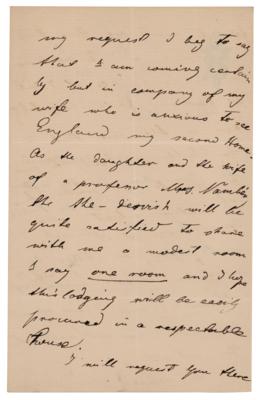 my request I beg to say
that I am coming certain
ly but in company of my
wife who is anxious to see
England my second Home.
As the daughter and the wife
of a professor Mrs. Vambé
the will be
quite satisfied to share
with me a modest room
I say one room and I hope
this lodging will be easily
procured in a respectable
house.
I will request you